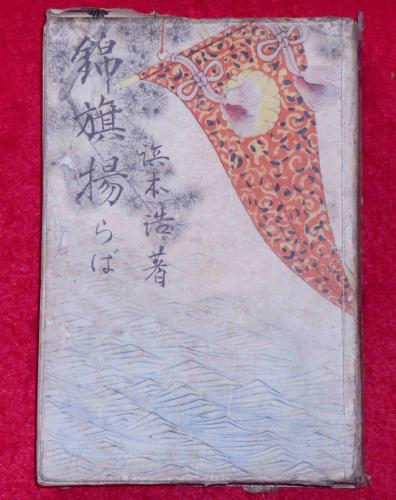 錦旗揚らば
浜本浩著